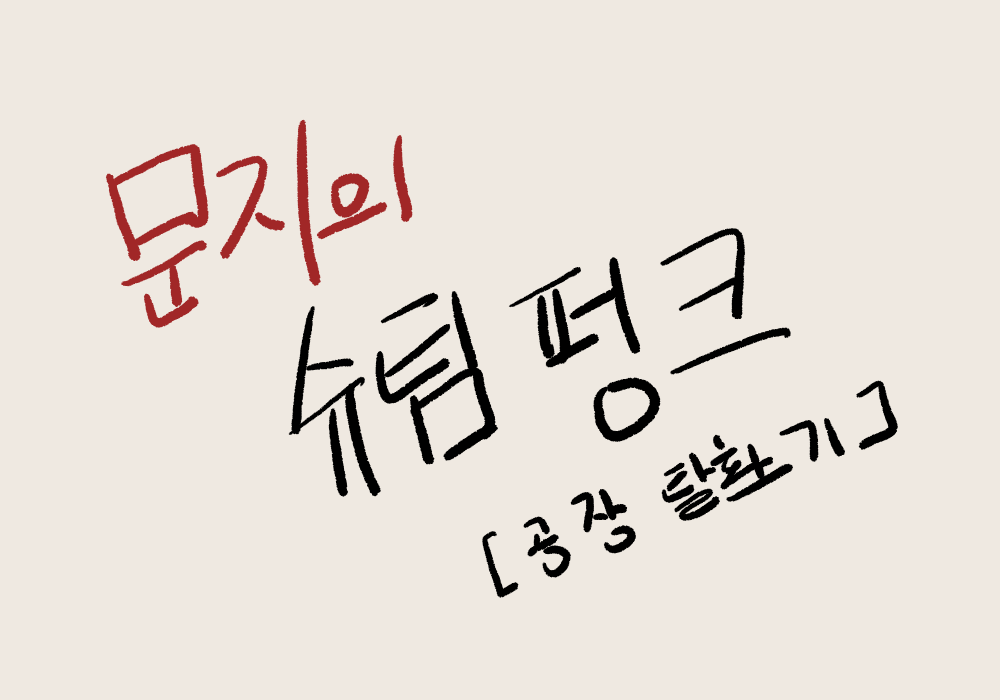 문지의
슈팀펑크
[공장 탈환기]